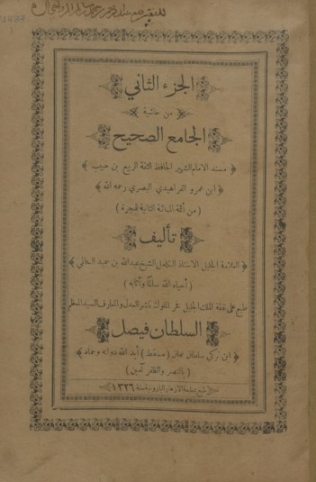 الجزء الثاني
من حاشية
الجامع الصحيح
﴿ مسند الامام الشهير الحافظ الثقة الربيع بن حبيب ﴾
﴿ ابن عمرو الفراهيدي البصري رحمه الله ﴾
( من أئمة المائة الثانية للهجرة )
تأليف
﴿ العلامة الجليل الاستاذ الشيخ عبد الله بن حميد السالمي ﴾
طبع على نفقة الملك الجليل
السلطان فيصل
﴿ ابن تركي سلطان عمان ( مسقط ) أيد الله دولته وحماه ﴾
( بالنصر والظفر آمين )
سنة ١٣٢٦